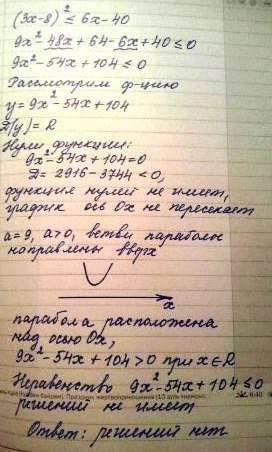 (3x-8)² ≤ 6x-40
9x²-48x+64-6x+40 ≤ 0
9x²-54x+104 ≤ 0
Рассмотрим ф-цию
y=9x²-54x+104
D(y)=R
Нули функции:
9x²-54x+104=0
D=2916-3744<0,
функция нулей не имеет,
график ось Ox не пересекает
a=9, a>0, ветви параболы
направлены вверх
x
парабола расположена
над осью Ox,
9x²-54x+104>0 при x∈R
Неравенство 9x²-54x+104≤0
решений не имеет
Ответ: решений нет